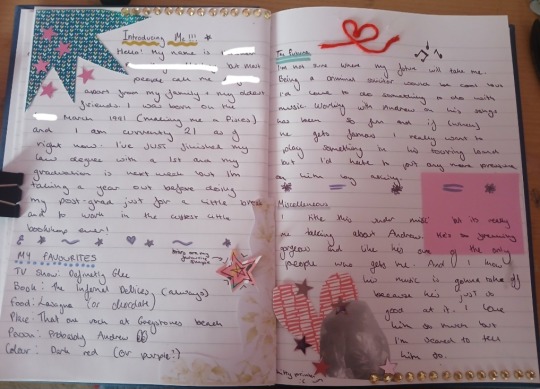 Introducing Me!!!
Hello! My name is
but most
people call me
apart from my family + my oldest
friends. I was born on the
March 1991 (making me a Pisces)
and I am currently 21 as of
right now. I've just finished my
law degree with a 1st and my
graduation is next week but I'm
taking a year out before doing
my post-grad just for a little break
and to work in the cutest little
bookshop ever!
MY FAVOURITES
TV Show: Definetly Glee
Book: The Infernal Devices (always)
Food: Lasagna (or chocolate)
Place: That one rock at Greystones beach
Person: Probably Andrew
Colour: Dark red (or purple?)
Stars are my favourite
The Future
I'm not sure where my future will take me.
Being a criminal solicitor would be cool but
I'd love to do something to do with
music. Working with Andrew on his songs
has been so fun and if (when)
he gets famous I really want to
play something in his touring band
but I'd hate to put any more pressure
on him by asking.
Miscellaneous
I like this under 'misc' but its really
me talking about Andrew. He's so
gorgeous and like he's one of the only
people who gets me. And I know
his music is gonna take off
because he's just so
good at it. I love
him so much but
I'm scared to tell
him so.